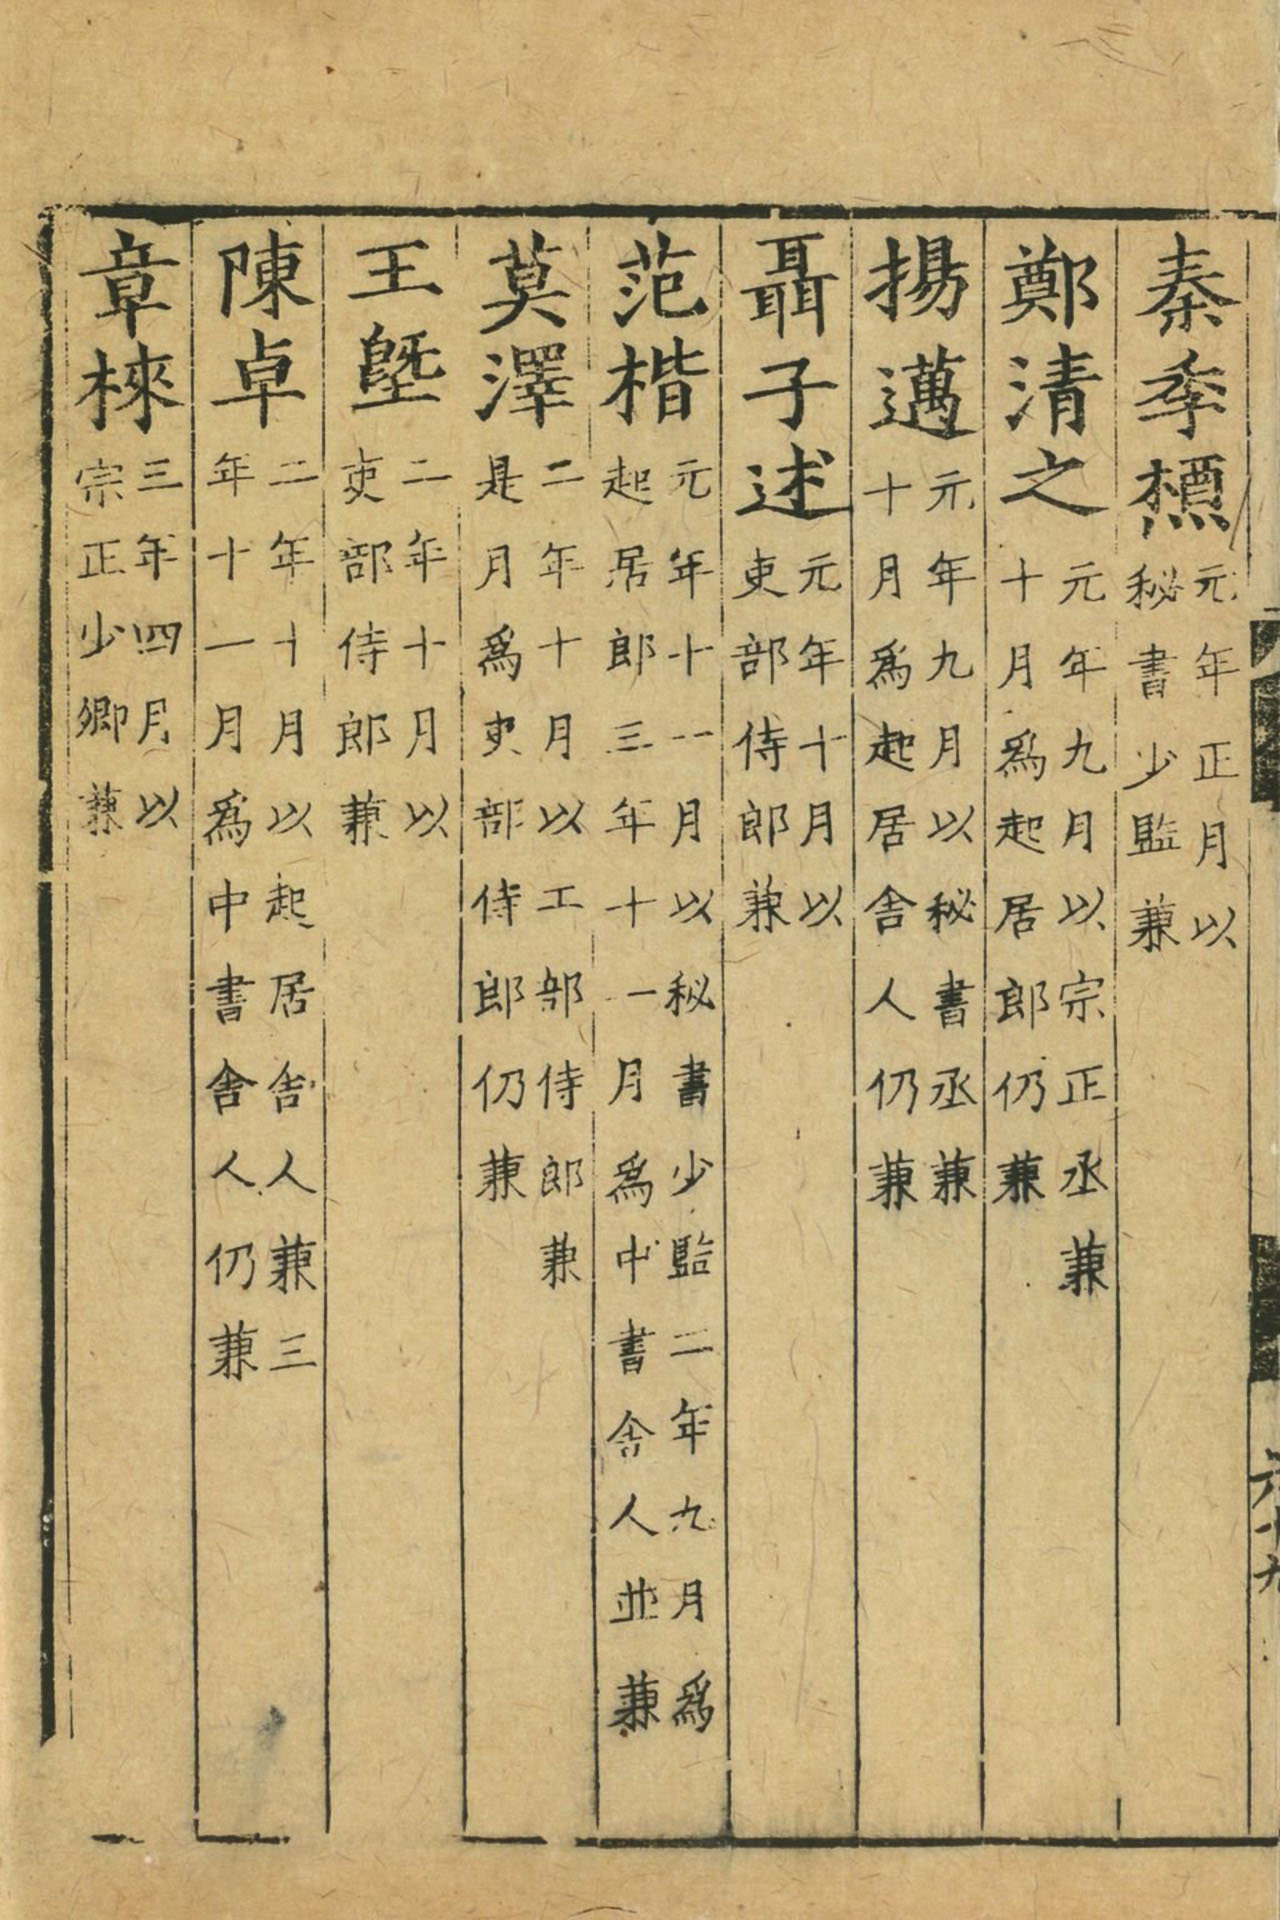 秦季槱元年正月以秘書少監兼
鄭清之元年九月以宗正丞兼十月爲起居郎仍兼
揚邁元年九月以秘書丞兼十月爲起居舍人仍兼
聶子述元年十月以吏部侍郎兼
范楷元年十一月以秘書少監二年九月爲起居郎三年十一月爲中書舍人並兼
莫澤二年十月以工部侍郎兼是月爲吏部侍郎仍兼
王塈二年十月以吏部侍郎兼
陳卓二年十月以起居舍人兼三年十一月爲中書舍人仍兼
章棶三年四月以宗正少卿兼
六十九